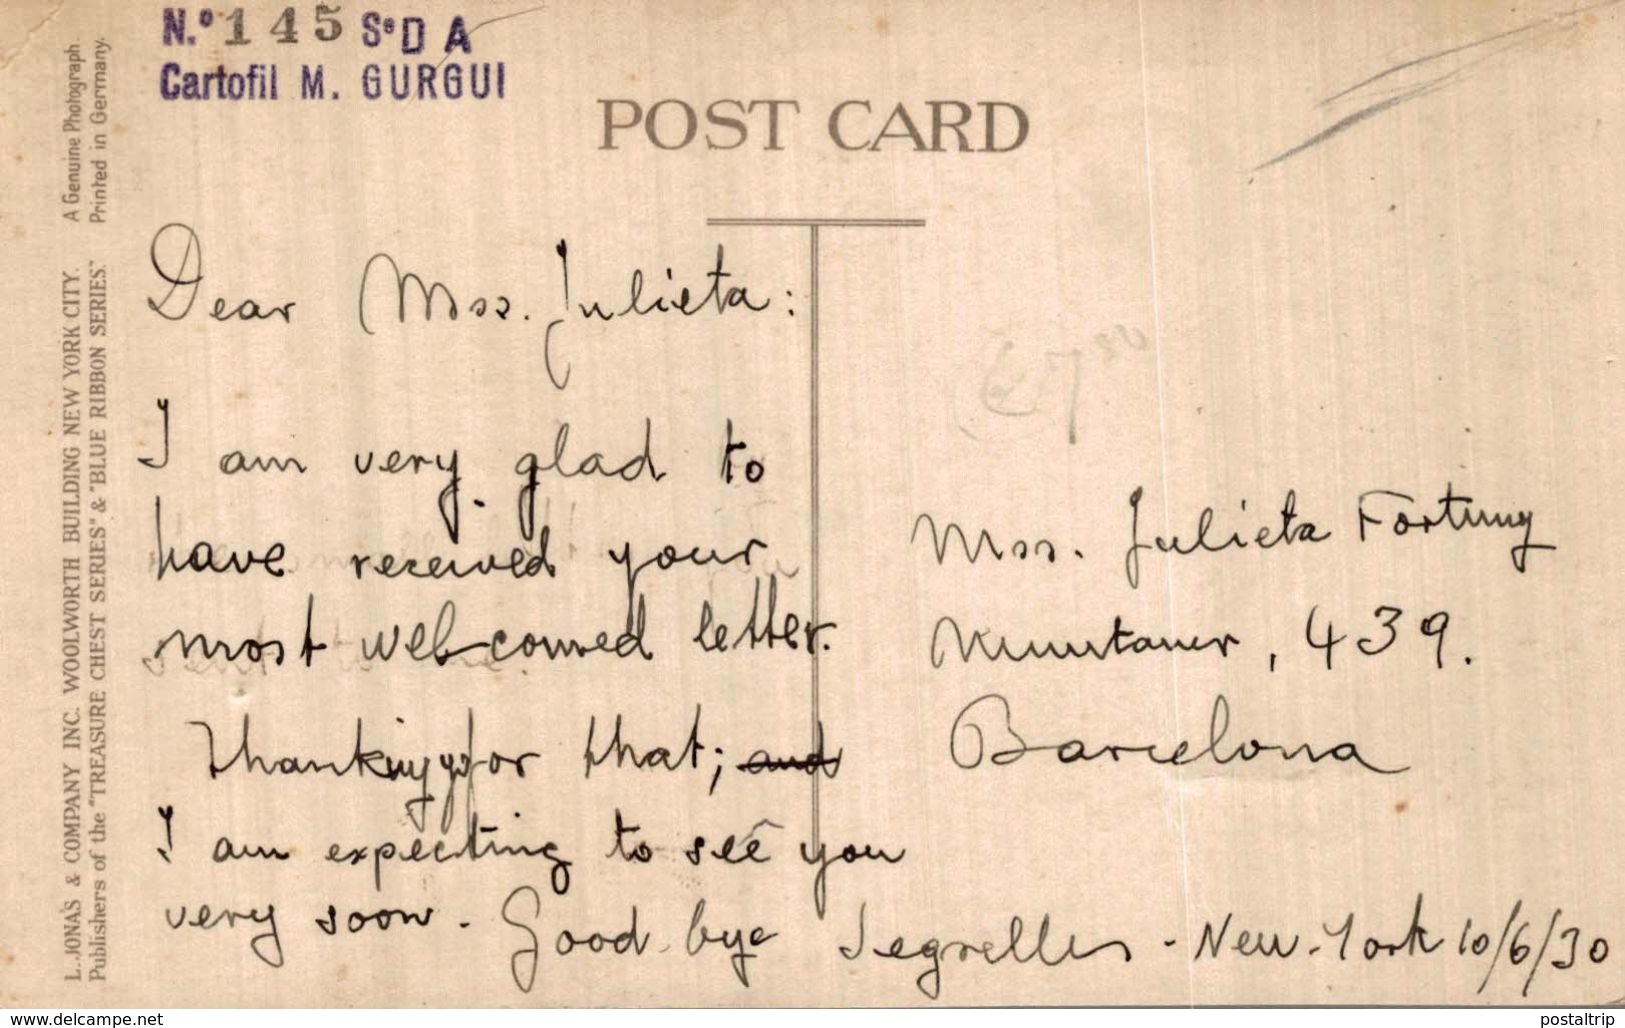 N.º 145 Sº D A
Cartofil M. GURGUI
POST CARD
A Genuine Photograph.
Printed in Germany.
L. JONAS & COMPANY INC. WOOLWORTH BUILDING NEW YORK CITY.
Publishers of the "TREASURE CHEST SERIES" & "BLUE RIBBON SERIES."
Dear Mss. Julieta:
I am very glad to
have received your
most wel-comed letter.
Thanking for that; and
I am expecting to see you
very soon. Good-bye Segrelles - New-York 10/6/30
Mss. Julieta Fortuny
Muntaner, 439.
Barcelona
www.delcampe.net
postaltrip